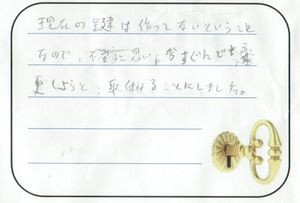 現在の鍵は作ってないということ
なので、不安に思い、今すぐにでも変
更しようと、取付けることにしました。